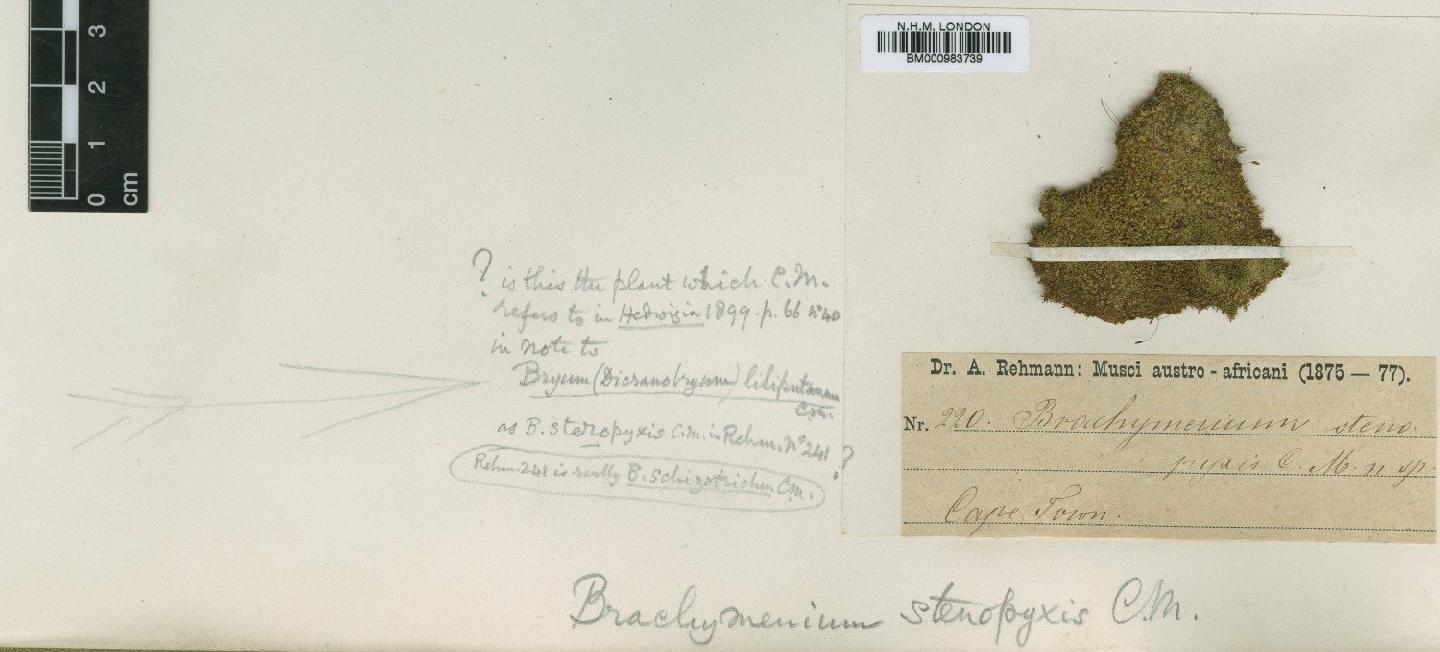 3
2
1
0
cm
N.H.M. LONDON
BM000983739
? is this the plant which C.M.
refers to in Hedwigia 1899. p. 66 nº 40
in note to
Bryum (Dicranobryum) liliputanum
C.M.
as B. steropyxis C.M. in Rehm. Nº 241 ?
Rehm. 241 is really B. schizotrichum C.M.
Dr. A. Rehmann: Musci austro-africani (1875 — 77).
Nr. 220. Brachymenium steno-
pyxis C. M. n sp.
Cape Town.
Brachymenium stenopyxis C.M.